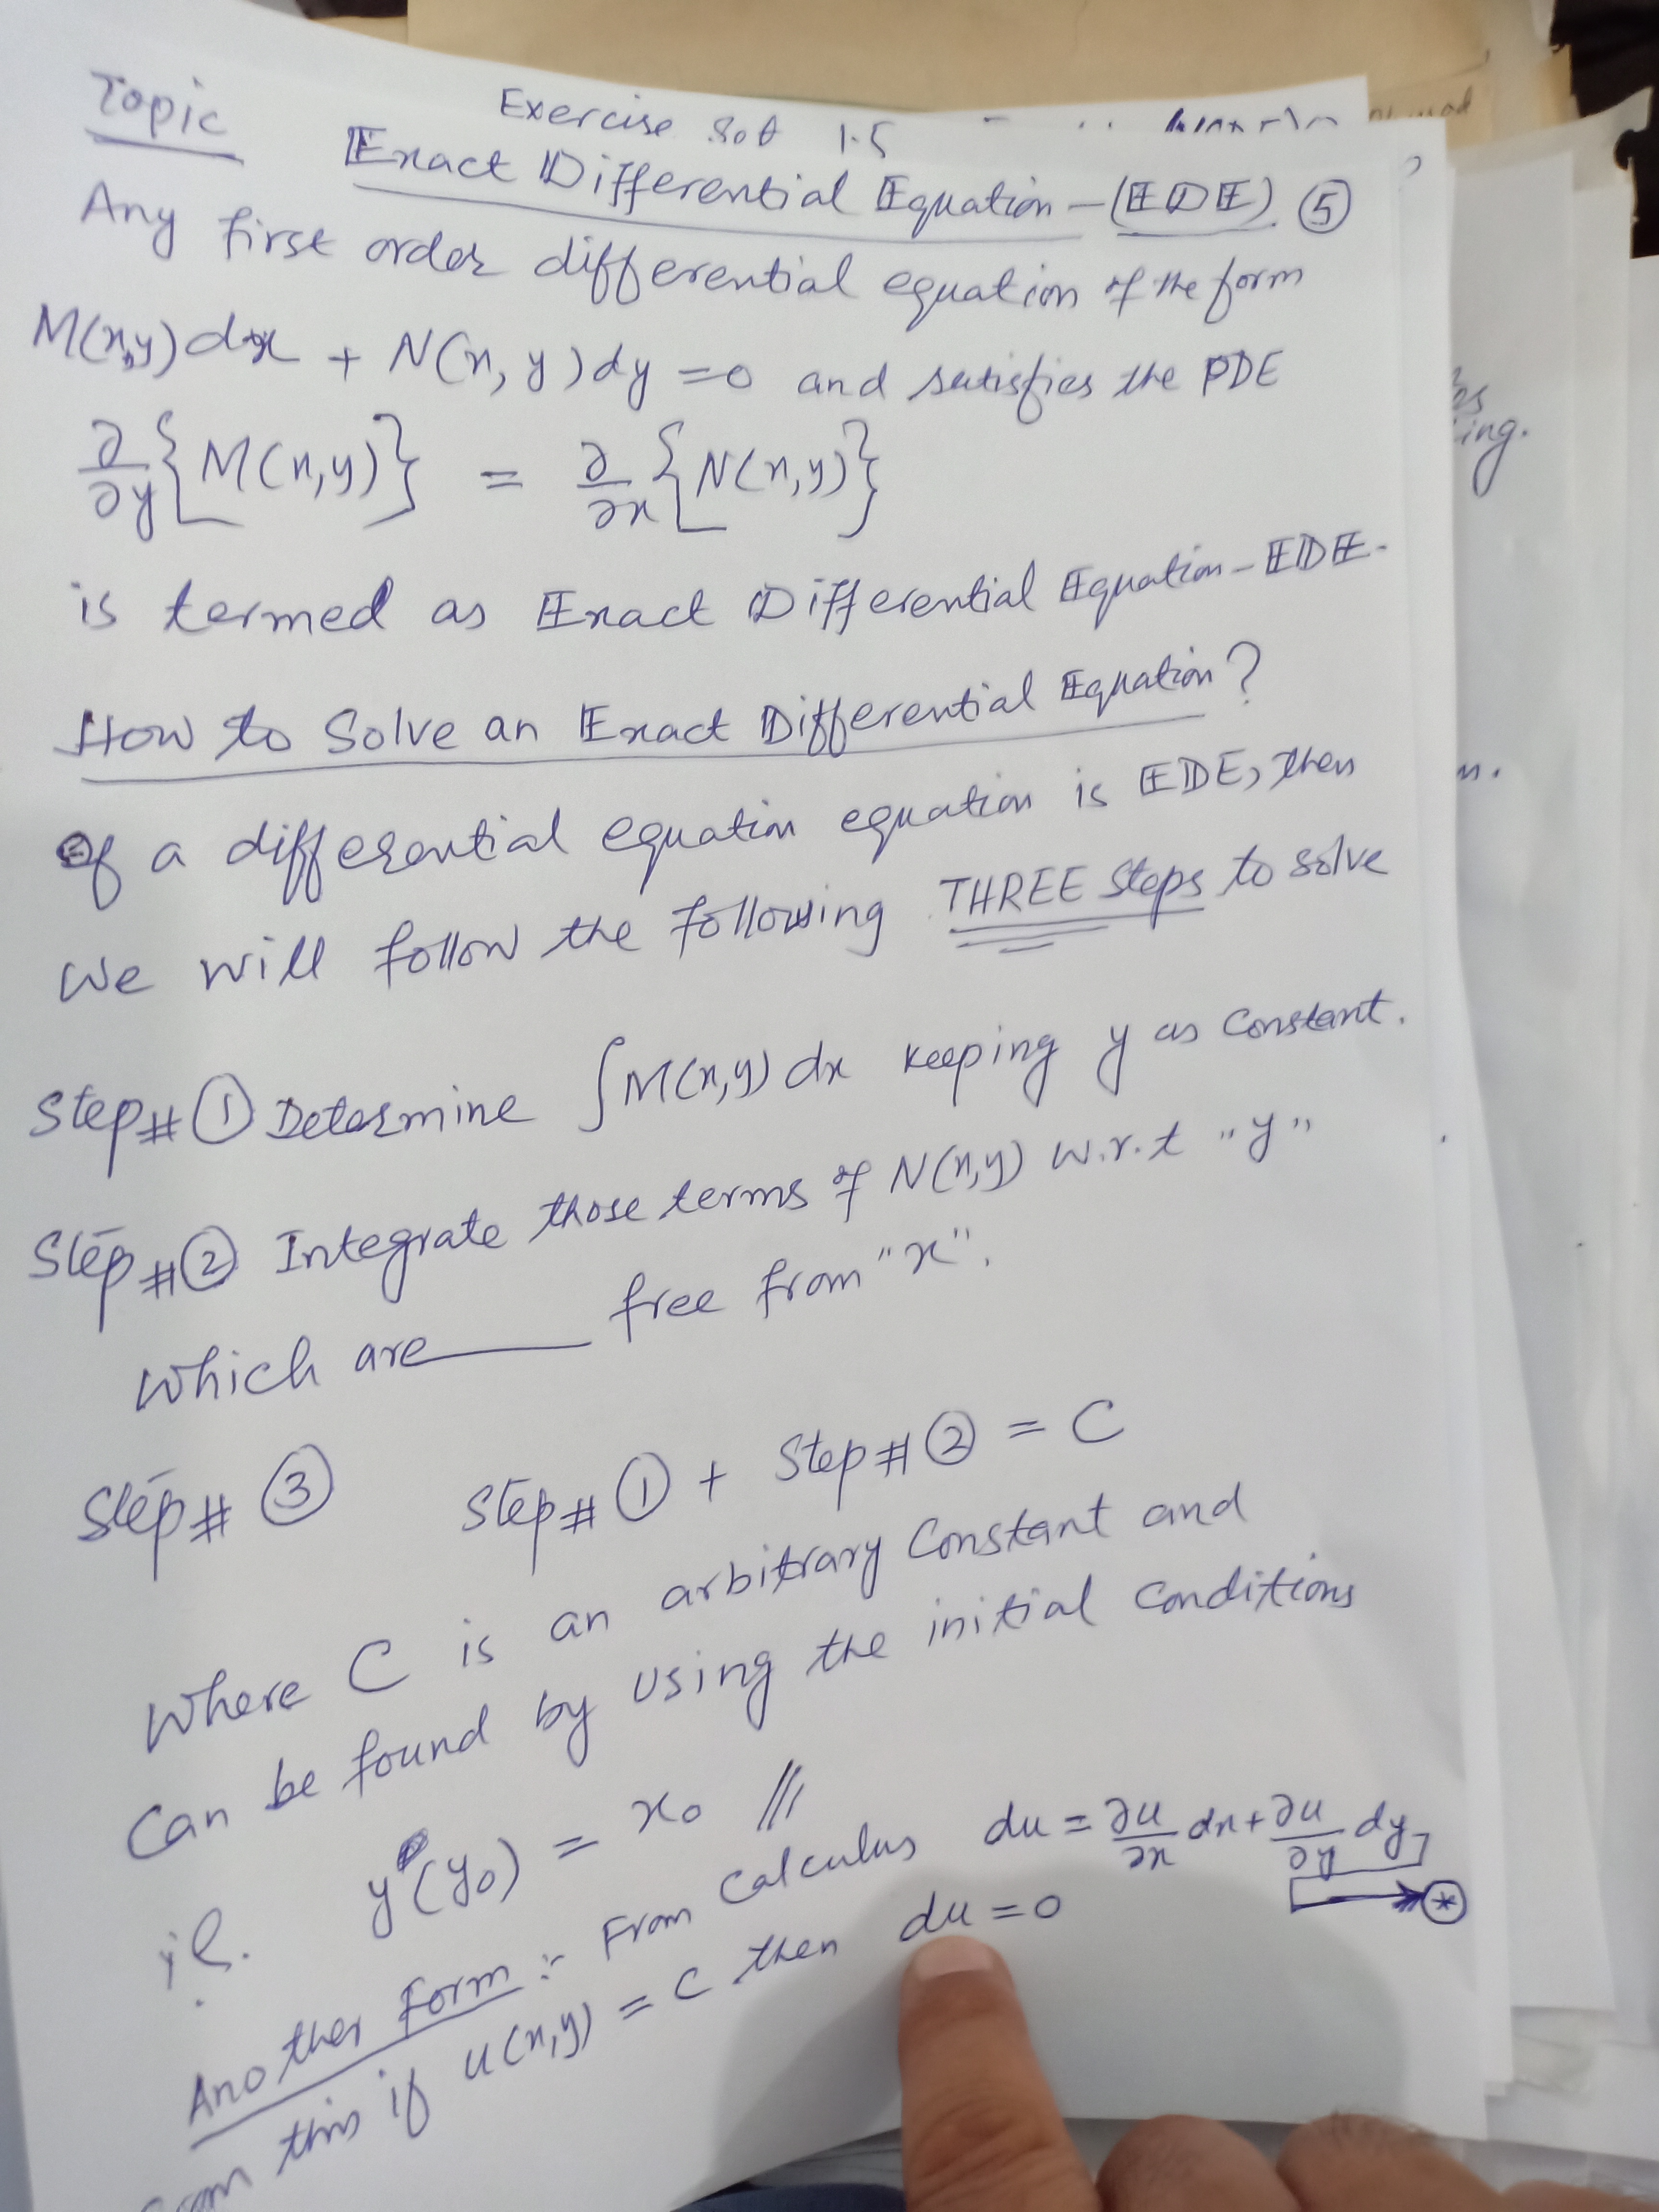 Topic
Exercise Set 1.5
Exact Differential Equation – (EDE). ⑤
Any first order differential equation of the form
M(x,y)dx + N(x,y)dy = 0 and satisfies the PDE
∂/∂y{M(x,y)} = ∂/∂x{N(x,y)}
is termed as Exact Differential Equation – EDE.
How to Solve an Exact Differential Equation?
If a differential equation equation is EDE, then
We will follow the following THREE Steps to solve
Step# ① Determine ∫M(x,y)dx keeping y as Constant.
Step# ② Integrate those terms of N(x,y) w.r.t "y"
which are free from "x".
Step# ③ Step# ① + Step# ② = C
Where C is an arbitrary Constant and
Can be found by using the initial Conditions
i.e. y(y₀) = x₀ ///
Another Form :- From Calculus du = ∂u/∂x dx + ∂u/∂y dy
⊛
this if u(x,y) = C then du = 0
ing.